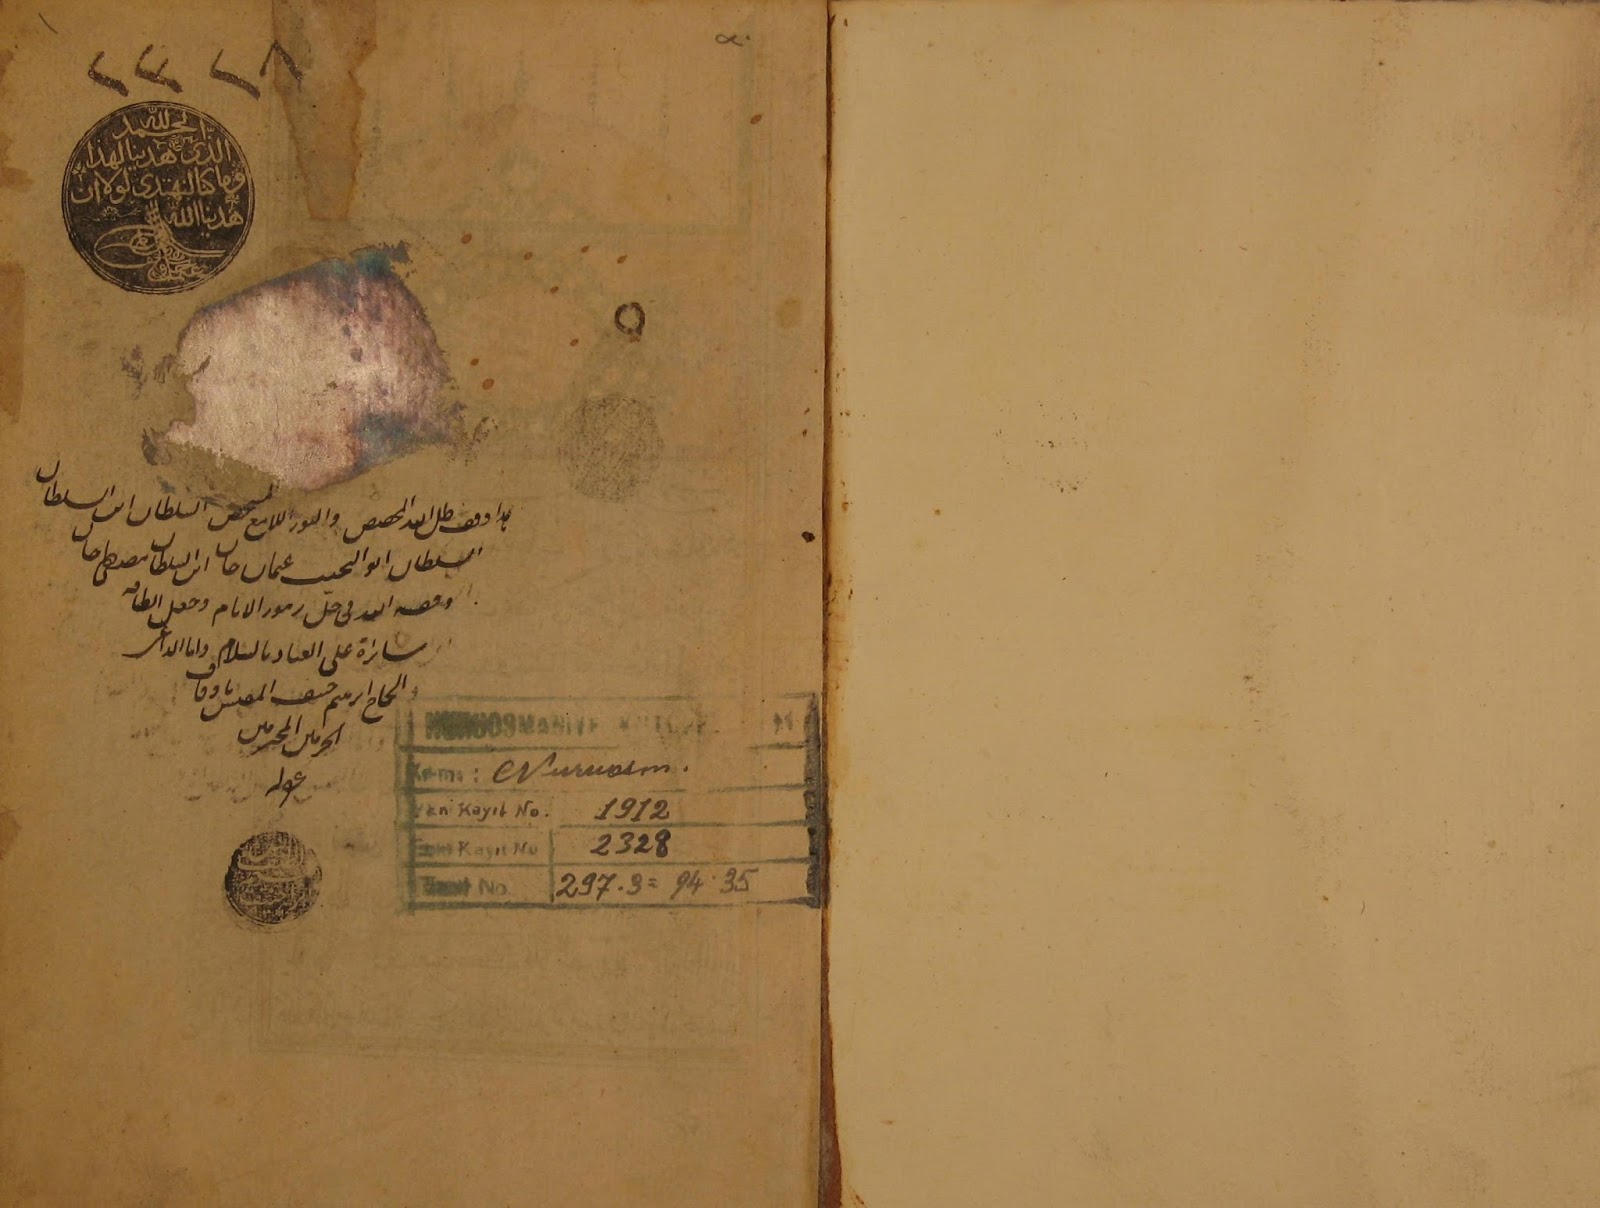 ٢٣٢٨
الحمد لله
الذي هدينا لهذا
وما كنا لنهتدي لولا ان
هدينا الله
هذا وقف ظل الله المحض والنور اللامع المتمحض السلطان ابن السلطان
السلطان ابو عثمان خان ابن السلطان مصطفى خان
وقفه الله في حل رموز الانام وجعل الطافه
سائرة على العباد بالسلام وانا الداعي
الحاج ابرهيم حنيف المفتش باوقاف
الحرمين المحترمين
غفر له
NURUOSMANİYE KÜTÜP
Kısmı : Nuruosm.
Yeni Kayıt No. 1912
Eski Kayıt No 2328
Tasnif No. 297.3= 94.35